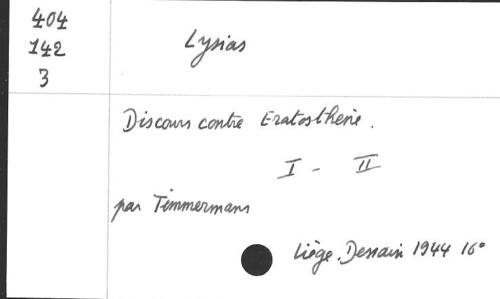 404
142
3
Lysias
Discours contre Eratosthène.
I - II
par Timmermans
Liège. Dessain 1944 16°